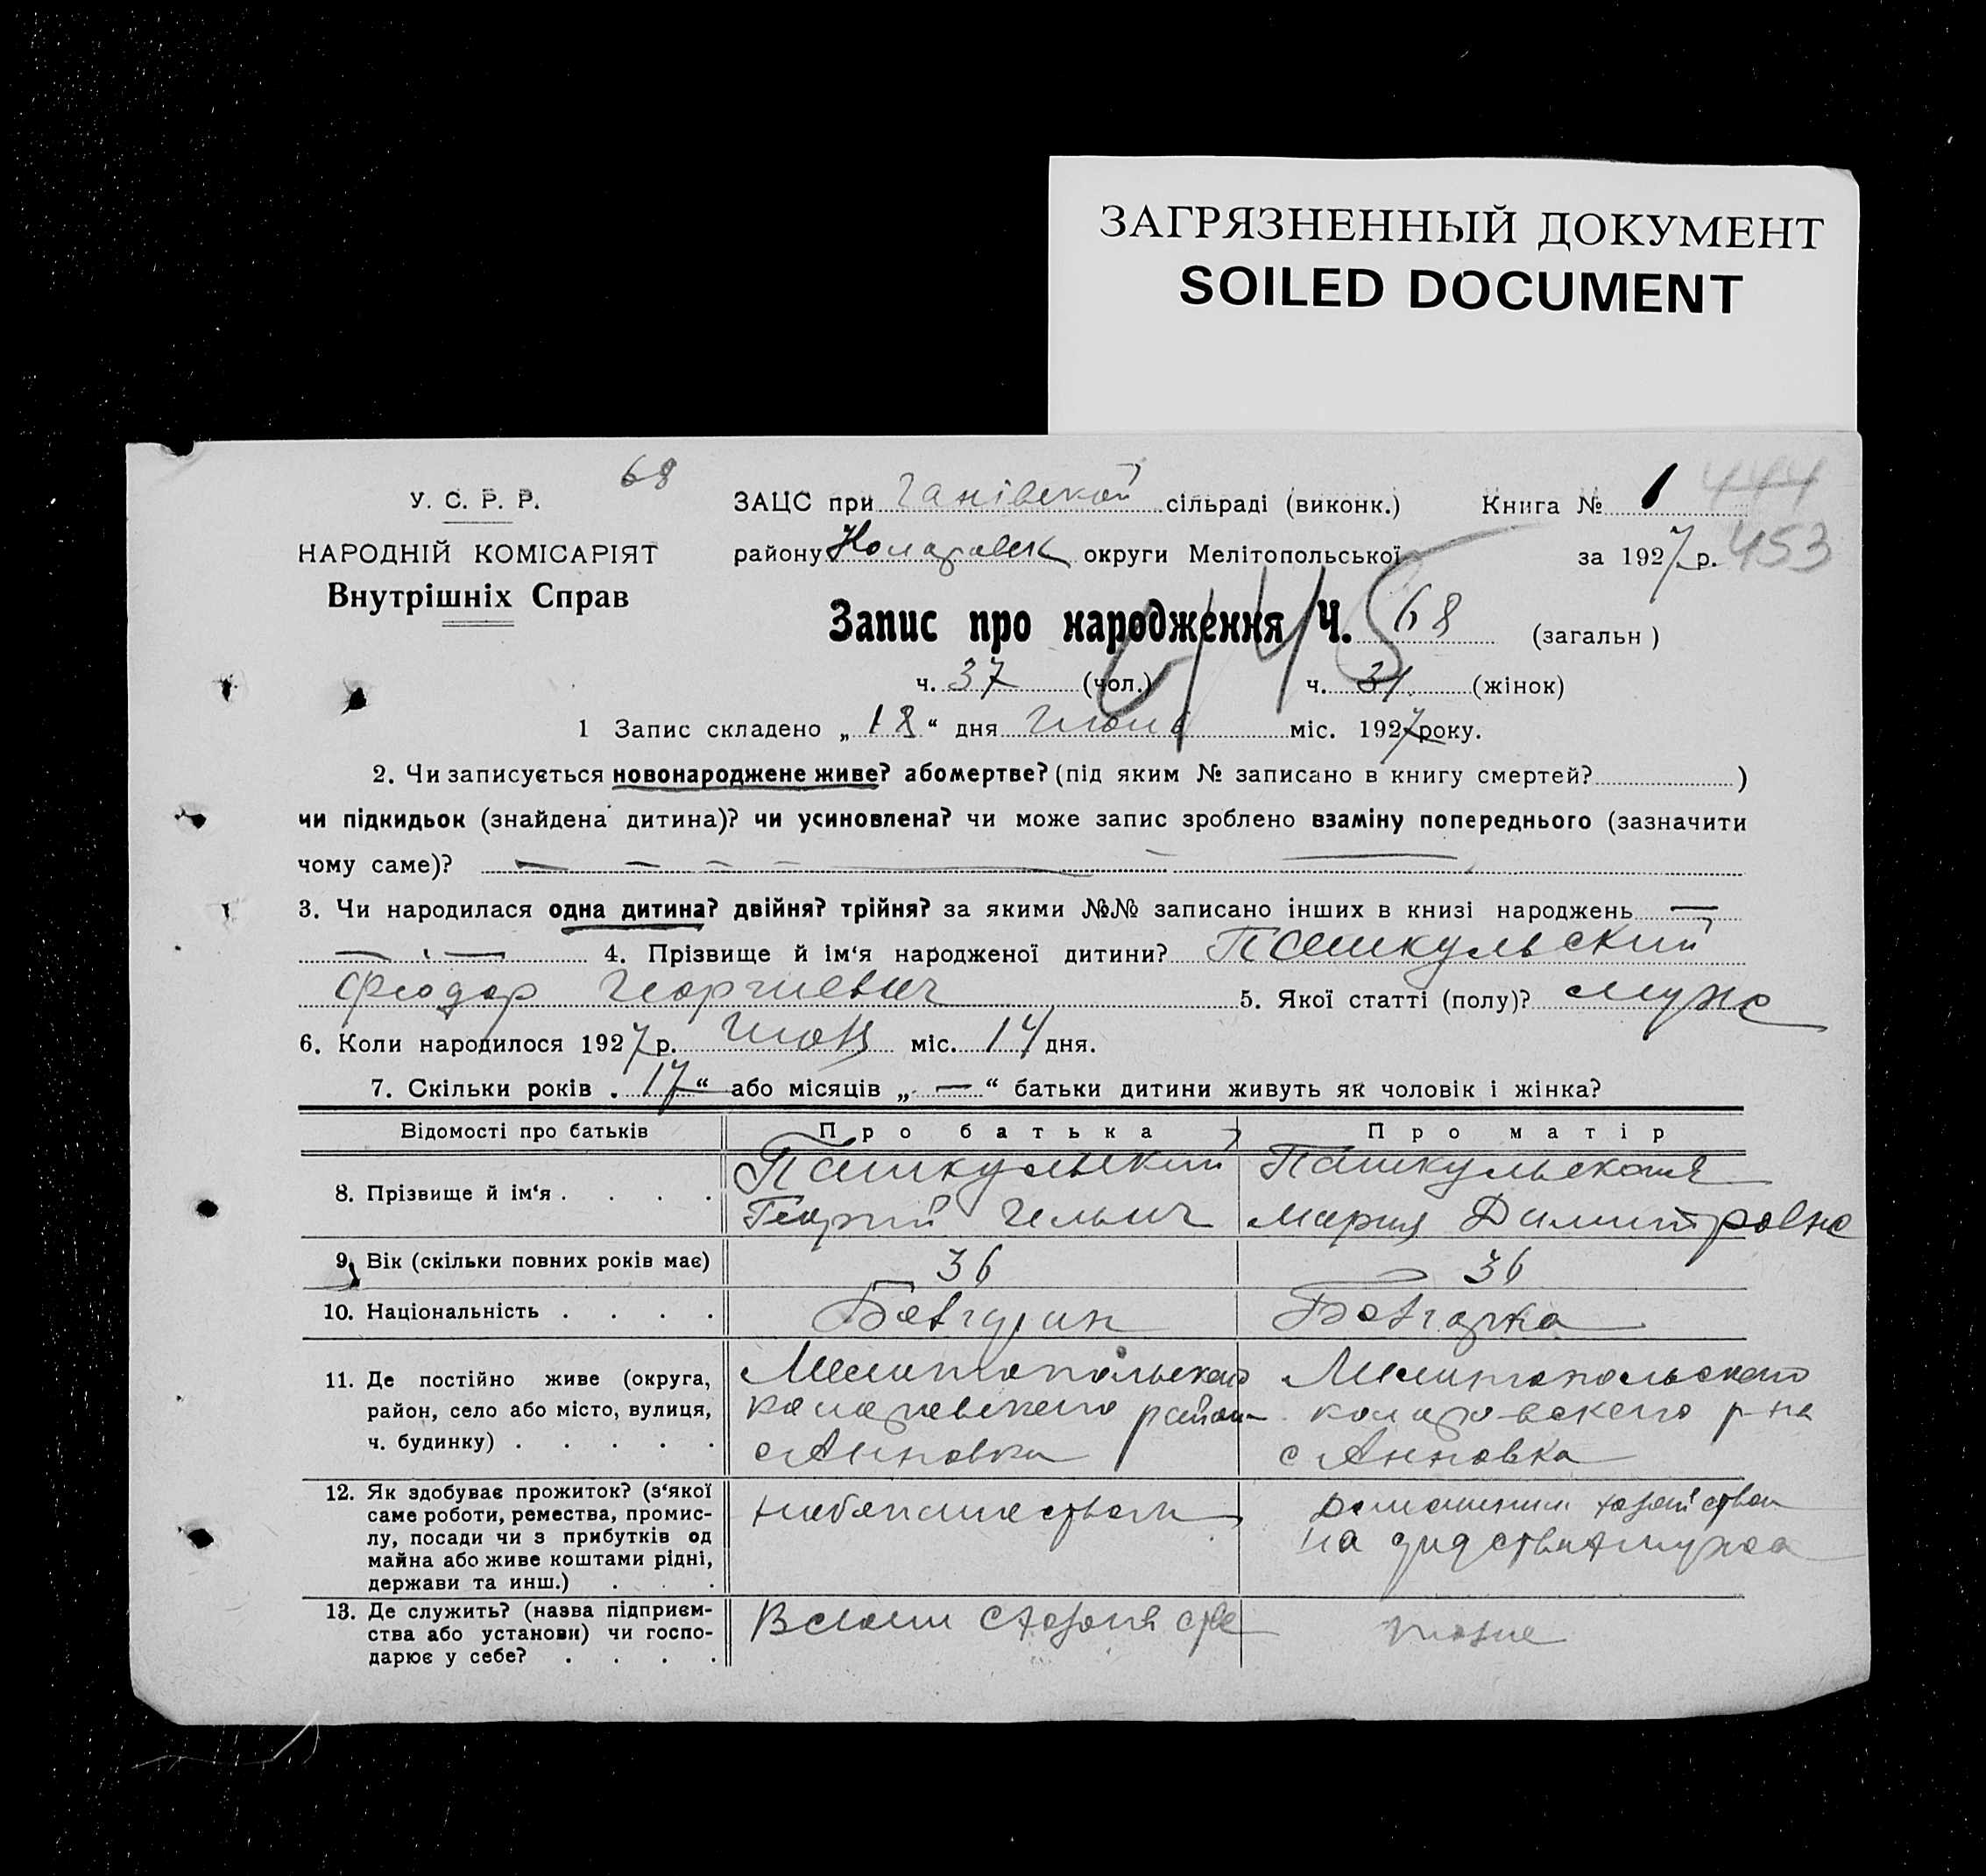 ЗАГРЯЗНЕННЫЙ ДОКУМЕНТ
SOILED DOCUMENT
68
444
У. С. Р. Р.
НАРОДНІЙ КОМІСАРІЯТ
Внутрішніх Справ
ЗАЦС при Ганівской сільраді (виконк.) Книга № 1
району Коларовск округи Мелітопольської за 1927 р. 453
445
Запис про народження Ч. 68 (загальн )
ч. 37 (чол.) ч. 31 (жінок)
1 Запис складено „ 18 “ дня міс. 1927 року.
2. Чи записується новонароджене живе? або мертве? (під яким № записано в книгу смертей? )
чи підкидьок (знайдена дитина)? чи усиновлена? чи може запис зроблено взаміну попереднього (зазначити
чому саме)? —
3. Чи народилася одна дитина? двійня? трійня? за якими №№ записано інших в книзі народжень —
— 4. Прізвище й ім‘я народженої дитини? Пашкульский
Фиодор Георгиевич 5. Якої статті (полу)? муж
6. Коли народилося 1927 р. міс. 14 дня.
7. Скільки років „ 17 “ або місяців „ — “ батьки дитини живуть як чоловік і жінка?
Відомості про батьків Про батька Про матір
8. Прізвище й ім‘я . . . . Пашкульский Георгий Ильич Пашкульская Мария Димитровна
9. Вік (скільки повних років має) 36 36
10. Національність . . . . Болгарин Болгарка
11. Де постійно живе (округа,
район, село або місто, вулиця,
ч. будинку) . . . . .
Мелитопольского
коларовского район
с Анновка
Мелитопольского
коларовского р-на
с Анновка
12. Як здобуває прожиток? (з‘якої
саме роботи, ремества, промис-
лу, посади чи з прибутків од
майна або живе коштами рідні,
держави та инш.) . . .
хлебопашеством
Домашним хозайством
на средствия мужа
13. Де служить? (назва підприєм-
ства або установи) чи госпо-
дарює у себе? . . . .
В своем
тоже